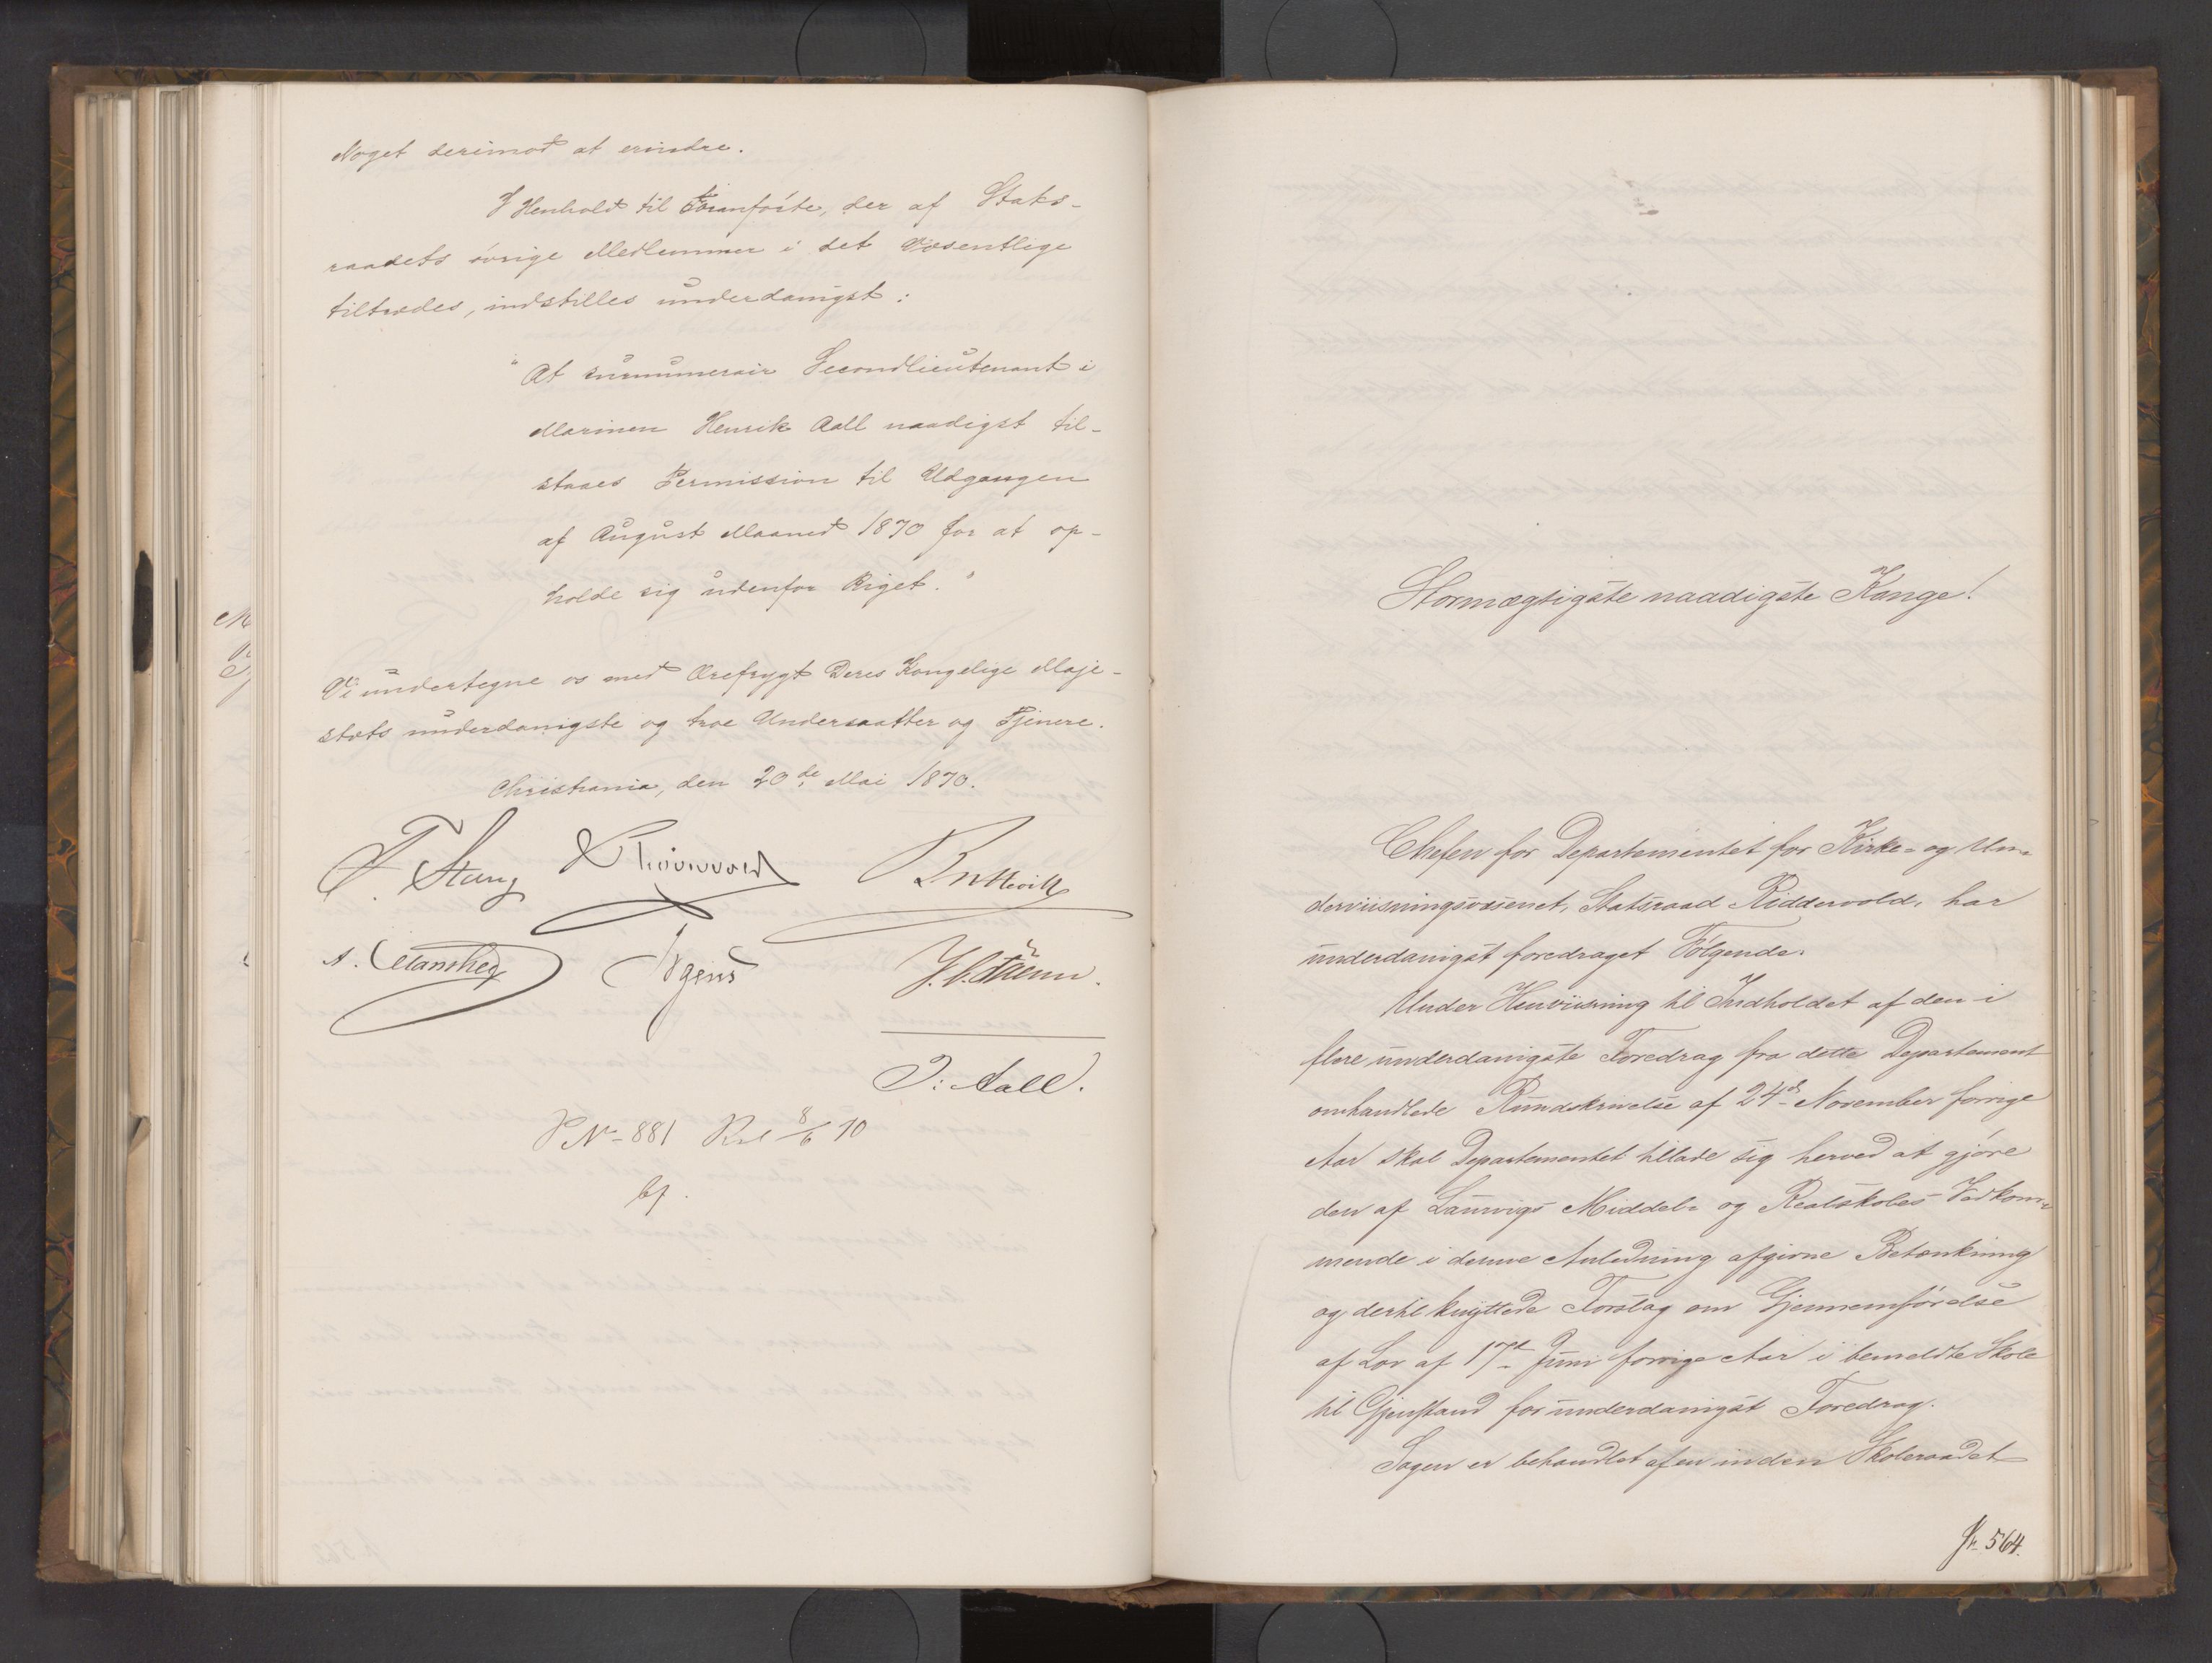 Noget derimod at erindre.
I Henhold til Foranførte, der af Stats-
raadets øvrige Medlemmer i det Væsentlige
tiltrædes, indstilles underdanigst:
"At surnumerair Secondlieutenant i
Marinen Henrik Aall naadigst til-
staaes Permission til Udgangen
af August Maaned 1870 for at op-
holde sig udenfor Riget."
Vi undertegne os med Ærefrygt Deres Kongelige Maje-
stæts underdanigste og troe Undersaatter og Tjenere.
Christiania, den 20de Mai 1870.
F. Stang
Bretteville
A. Manthey Irgens
J. Aall.
No 881 8/6 70
Stormægtigste naadigste Konge!
Chefen for Departementet for Kirke- og Un-
dervisningsvæsenet, Statsraad Riddervold, har
underdanigst foredraget Følgende:
Under Henviisning til Indholdet af den i
flere underdanigste Foredrag fra dette Departement
omhandlede Rundskrivelse af 24de November forrige
Aar skal Departementet tillade sig herved at gjøre
den af Laurvigs Middel- og Realskoles Vedkom-
mende i denne Anledning afgivne Betænkning
og dertil knyttede Forslag om Gjennemførelse
af Lov af 17de Juni forrige Aar i bemeldte Skole
til Gjenstand for underdanigst Foredrag.
Sagen er behandlet af en inden Skoleraadet
Kr. 564.